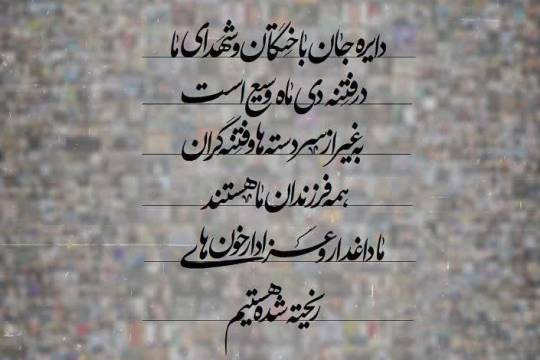 دایره جان باختگان و شهدای ما
در فتنه دی ماه وسیع است
به غیر از سردسته ها و فتنه گران
همه فرزندان ما هستند
ما داغدار و عزادار خون های
ریخته شده هستیم